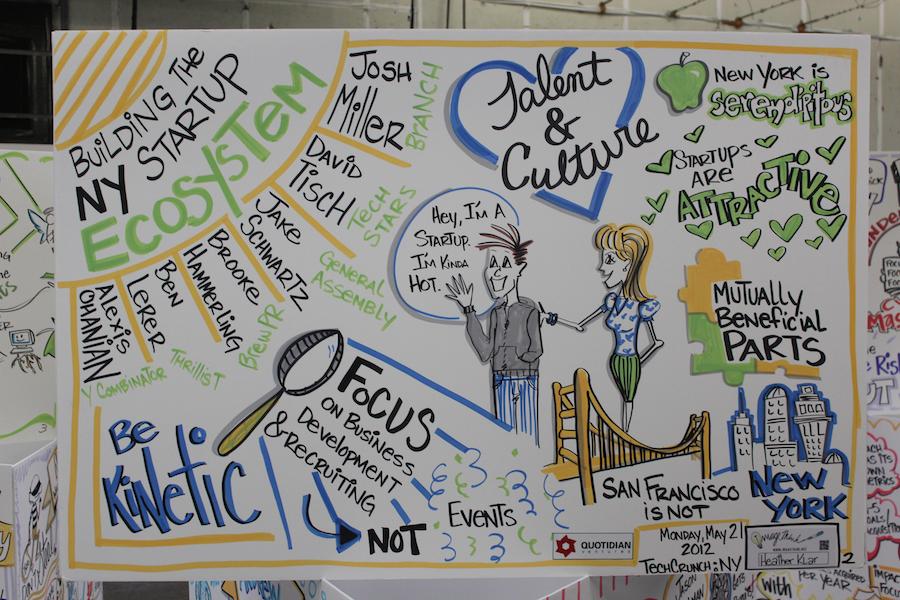 BUILDING THE
NY STARTUP
ECOSYSTEM
JOSH
MILLER
BRANCH
DAVID
TISCH
TECH
STARS
JAKE
SCHWARTZ
GENERAL
ASSEMBLY
BROOKE
HAMMERLING
BREWPR
BEN
LERER
THRILLIST
ALEXIS
OHANIAN
Y COMBINATOR
Talent
&
Culture
NEW YORK IS
SERENDIPITOUS
STARTUPS
ARE
ATTRACTIVE
HEY, I'M A
STARTUP.
I'M KINDA
HOT.
MUTUALLY
BENEFICIAL
PARTS
BE
KINETIC
FOCUS
ON BUSINESS
DEVELOPMENT
& RECRUITING
NOT
EVENTS
SAN FRANCISCO
IS NOT
NEW
YORK
QUOTIDIAN
VENTURES
MONDAY, MAY 21
2012
TECHCRUNCH:NY
HEATHER KLAR
2
3
WITH
PER YEAR